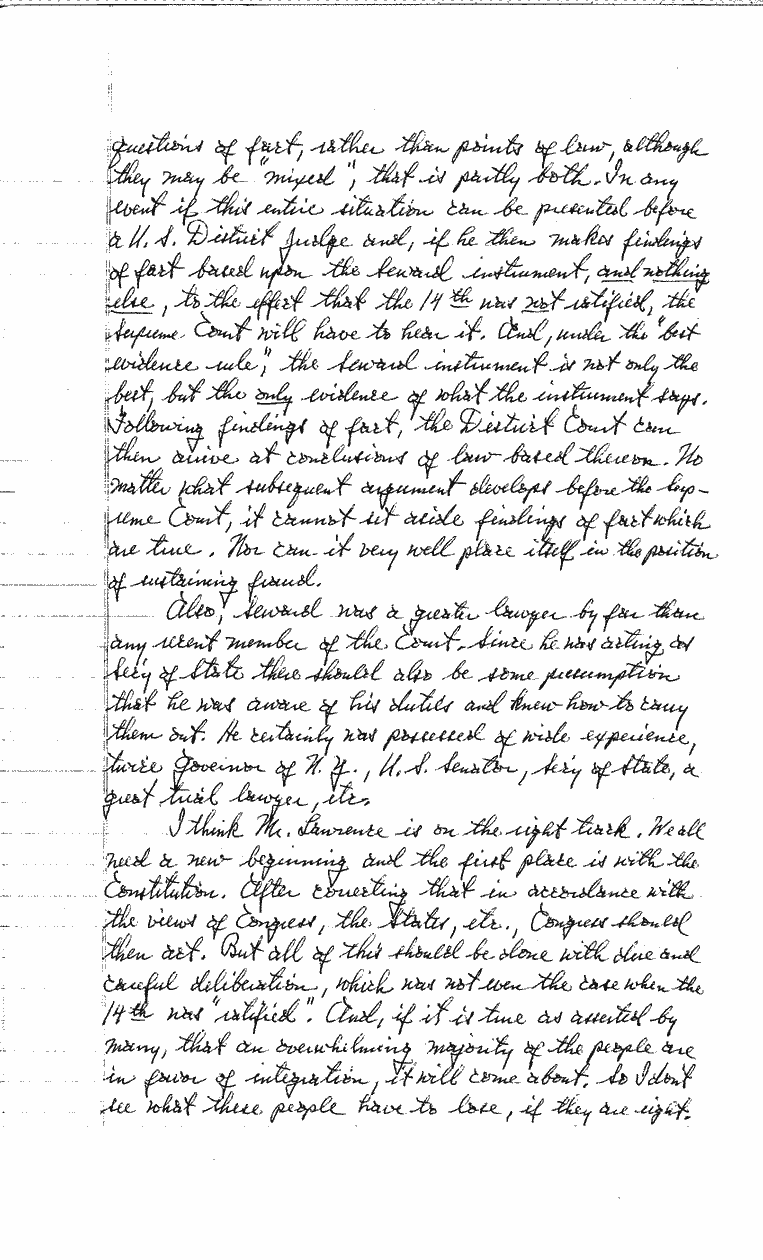 questions of fact, rather than points of law, although
they may be "mixed", that is partly both. In any
event if this entire situation can be presented before
a U. S. District Judge and, if he then makes findings
of fact based upon the Seward instrument, and nothing
else, to the effect that the 14th was not ratified, the
Supreme Court will have to hear it. And, under the "best
evidence rule", the Seward instrument is not only the
best, but the only evidence of what the instrument says.
Following findings of fact, the District Court can
then arrive at conclusions of law based thereon. No
matter what subsequent argument develops before the Sup-
reme Court, it cannot set aside findings of fact which
are true. Nor can it very well place itself in the position
of sustaining fraud.
Also, Seward was a greater lawyer by far than
any recent member of the Court. Since he was acting as
Sec'y of State there should also be some presumption
that he was aware of his duties and knew how to carry
them out. He certainly was possessed of wide experience,
twice Governor of N. Y., U. S. Senator, Sec'y of State, a
great trial lawyer, etc.
I think Mr. Lawrence is on the right track. We all
need a new beginning and the first place is with the
Constitution. After correcting that in accordance with
the views of Congress, the States, etc., Congress should
then act. But all of this should be done with due and
careful deliberation, which was not even the case when the
14th was "ratified". And, if it is true as asserted by
many, that an overwhelming majority of the people are
in favor of integration, it will come about. So I don't
see what these people have to lose, if they are right.